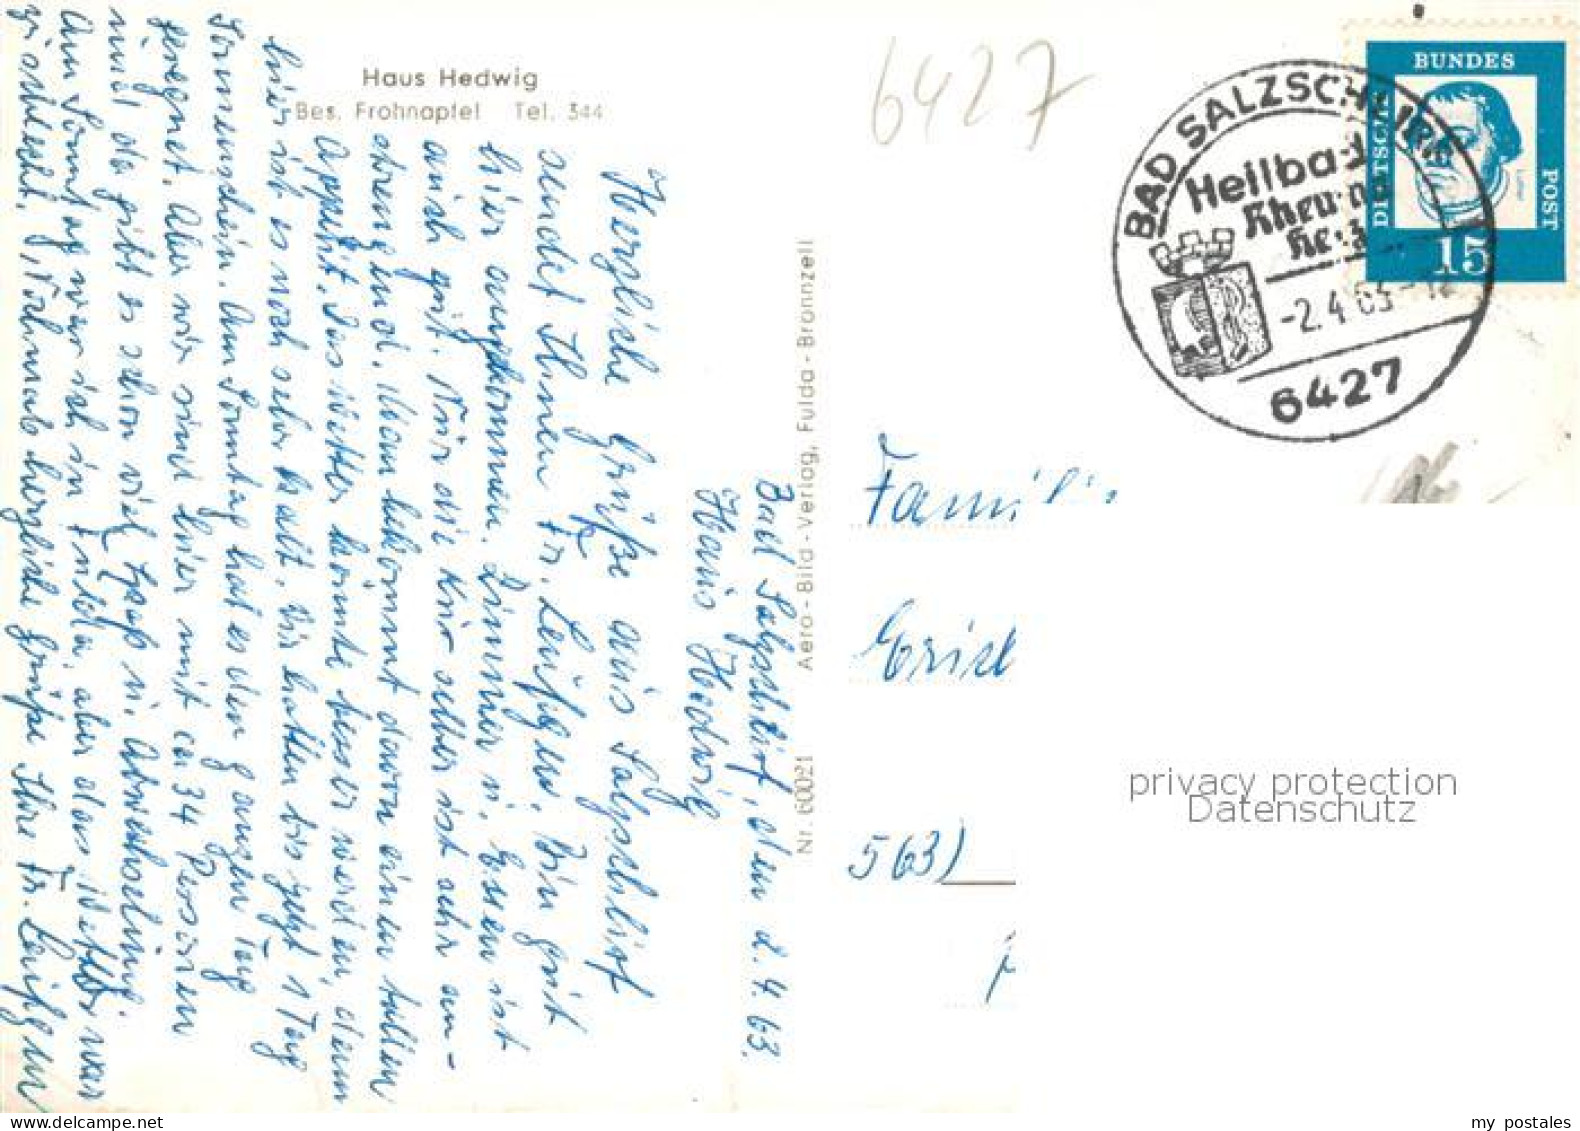 Haus Hedwig
Bes. Frohnapfel Tel. 344
6427
BAD SALZSCHLIRF
Heilbad
Rheuma
Herz
-2.4.63-12
6427
DEUTSCHE BUNDES POST
Luther
15
Nr. 60021 Aero-Bild-Verlag, Fulda-Bronnzell
Bad Salzschlirf, den 2.4.63.
Haus Hedwig
Herzliche Grüße aus Salzschlirf
sendet Ihnen Fr. Bin gut
hier angekommen. Zimmer u. Essen ist
auch gut. Nur die Kur selber ist sehr an-
strengend. Man bekommt davon einen tollen
Appetit. Das Wetter könnte besser werden, denn
hier ist es noch sehr kalt. Wir hatten bis jetzt 1 Tag
Sonnenschein. Am Sonntag hat es den ganzen Tag
geregnet. Aber wir sind hier mit ca 34 Personen
und da gibt es schon viel Spaß u. Abwechslung.
Am Sonntag war ich in Fulda, aber das Wetter war
zu schlecht. Nochmals herzliche Grüße Ihre Fr.
Famili
Erich
563)
privacy protection
Datenschutz
my postales